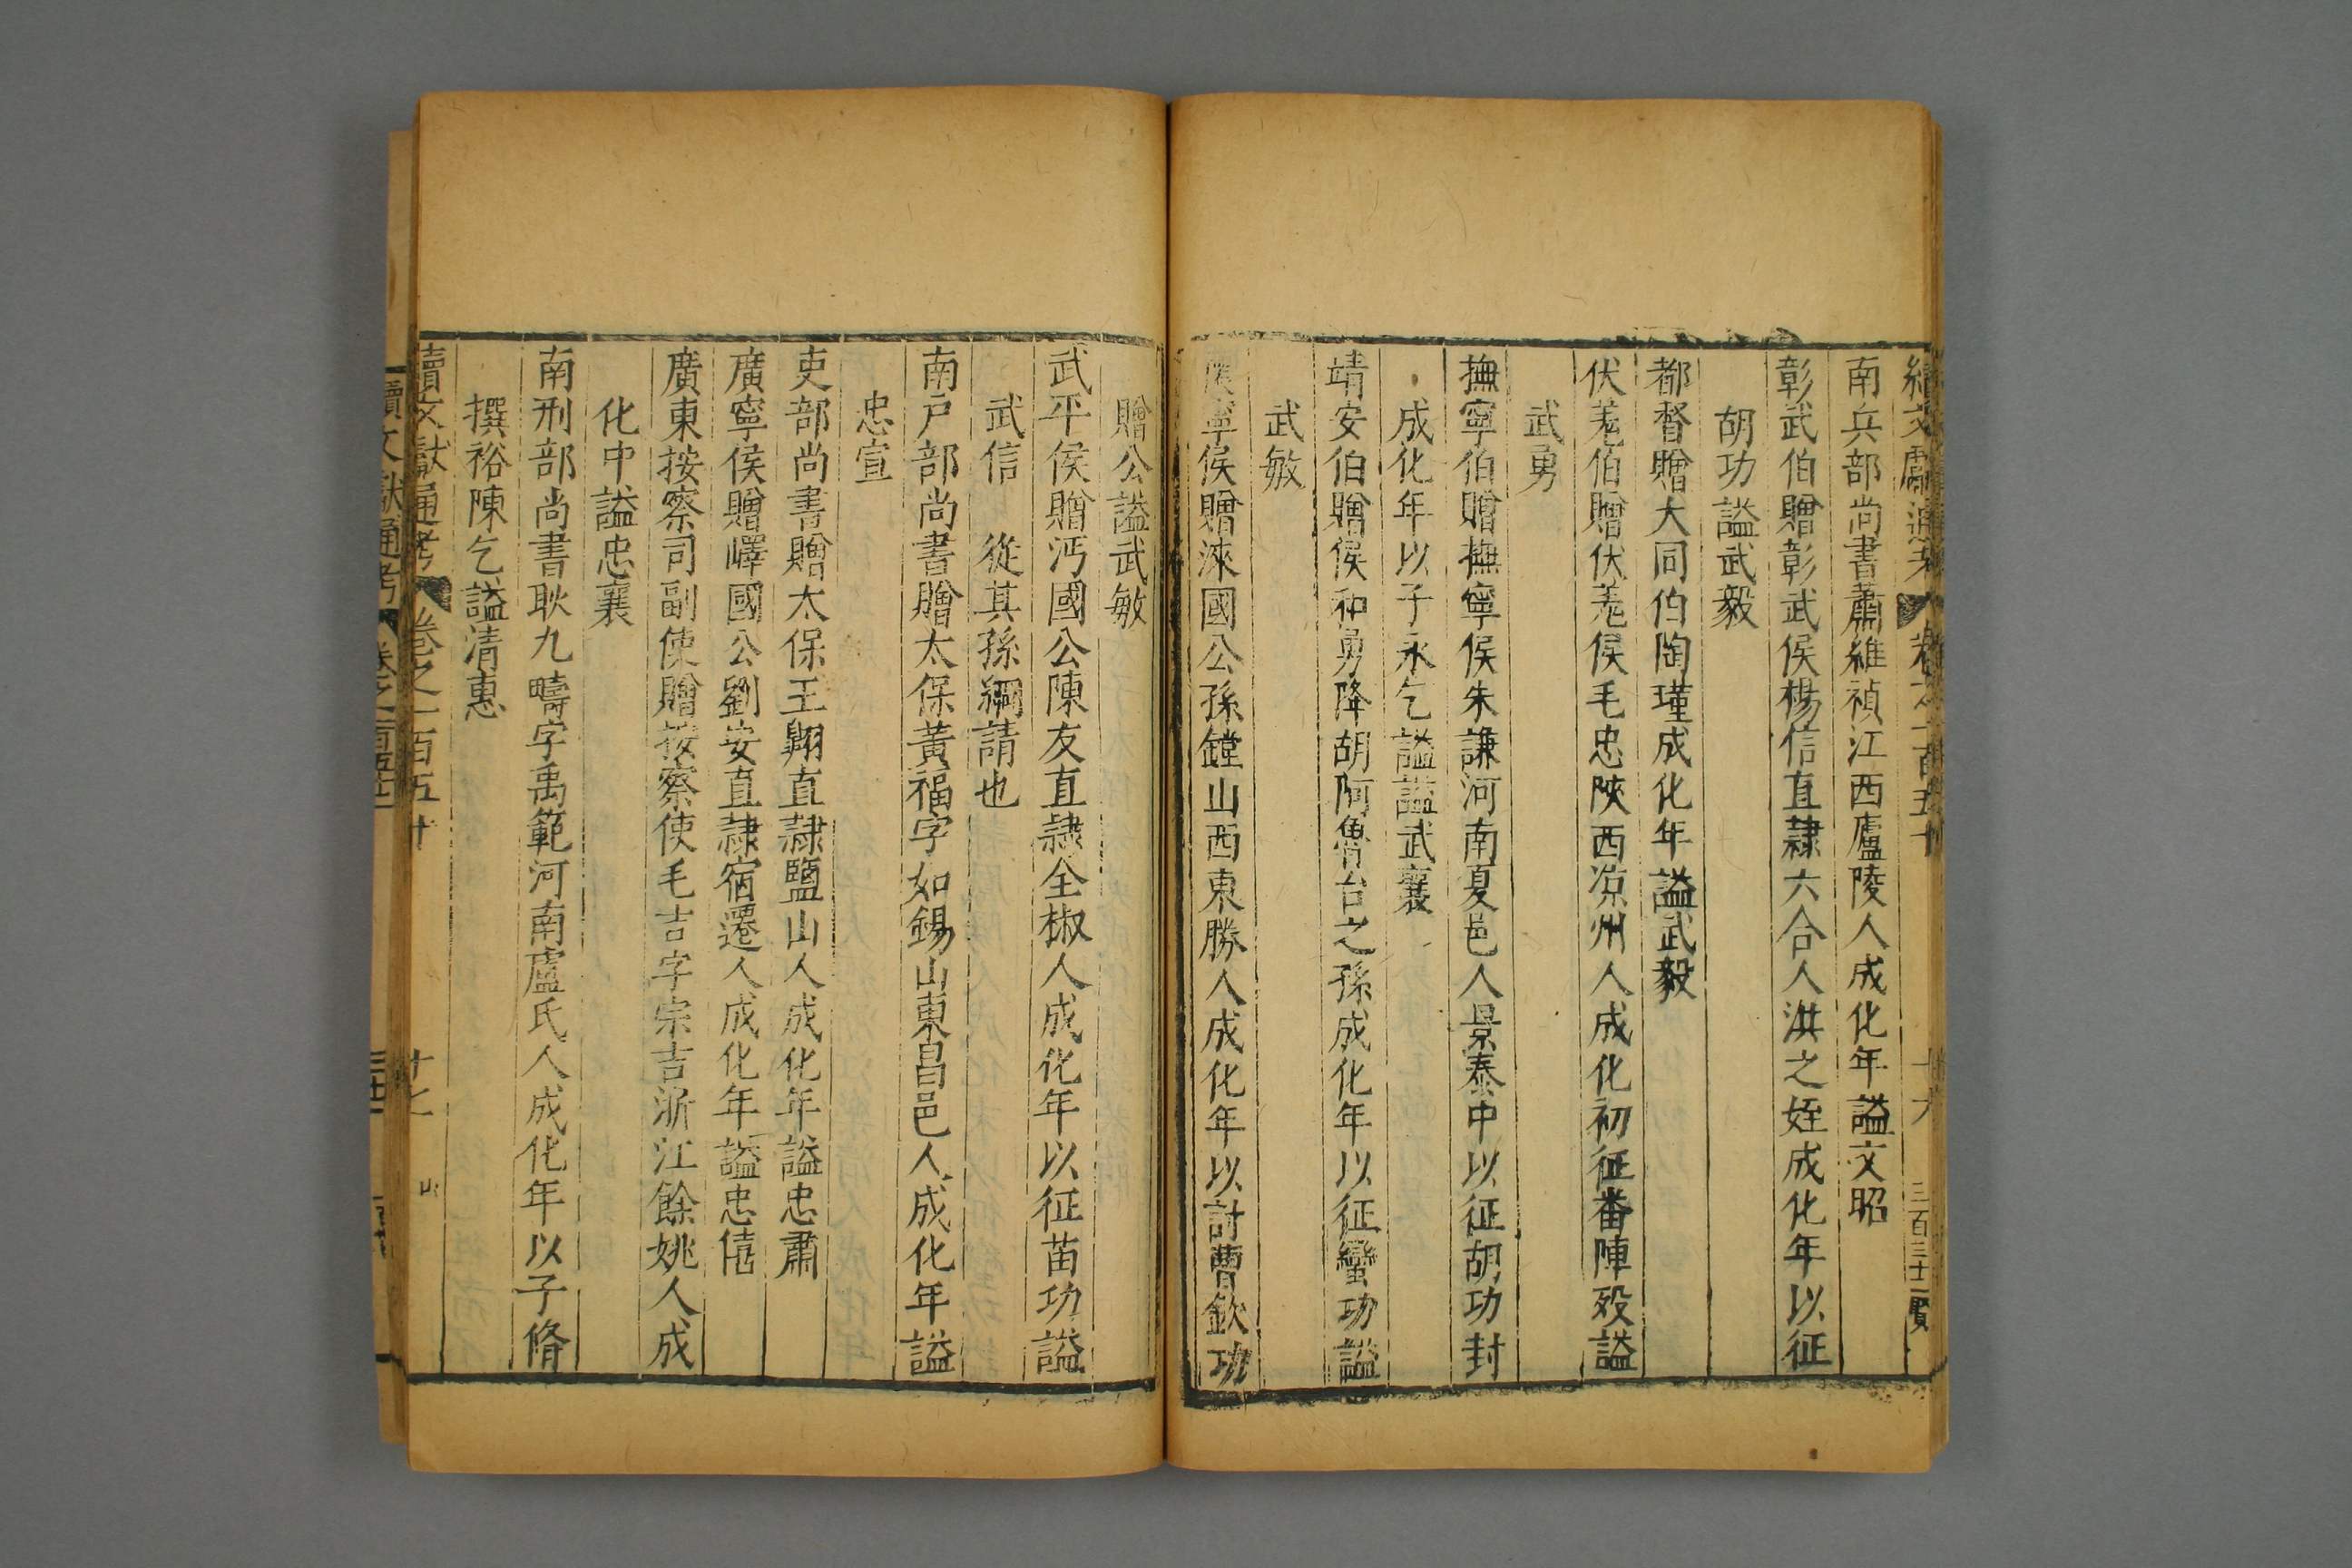 南兵部尚書蕭維禎江西廬陵人成化年謚文昭
彰武伯贈彰武侯楊信直隷六合人洪之姪成化年以征
胡功謚武毅
都督贈大同伯陶瑾成化年謚武毅
伏羌伯贈伏羌侯毛忠陜西凉州人成化初征番陣歿謚
武勇
撫寧伯贈撫寧侯朱謙河南夏邑人景泰中以征胡功封
成化年以子永乞謚謚武襄
靖安伯贈侯和勇降胡阿魯台之孫成化年以征蠻功謚
武敏
寧侯贈淶國公孫鏜山西東勝人成化年以討曹欽功
贈公謚武敏
武平侯贈沔國公陳友直隷全椒人成化年以征苗功謚
武信 從其孫綱請也
南戸部尚書贈太保黃福字如錫山東昌邑人成化年謚
忠宣
吏部尚書贈太保王翺直隷鹽山人成化年謚忠肅
廣寧侯贈嶧國公劉安直隷宿遷人成化年謚忠僖
廣東按察司副使贈按察使毛吉字宗吉浙江餘姚人成
化中謚忠襄
南刑部尚書耿九疇字禹範河南盧氏人成化年以子脩
撰裕陳乞謚清惠
續文獻通考 卷之一百五十 十七